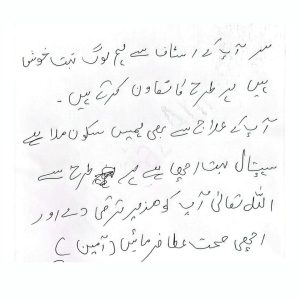 سر آپ کے اسٹاف سے ہم لوگ بہت خوش
ہیں ہر طرح کا تعاون کرتے ہیں ۔
آپ کے علاج سے بھی ہمیں سکون ملا ہے
ہسپتال بہت اچھا ہے ہر طرح سے
اللہ تعالیٰ آپ کو مذید ترقی دے اور
اچھی صحت عطا فرمائیں (آمین)